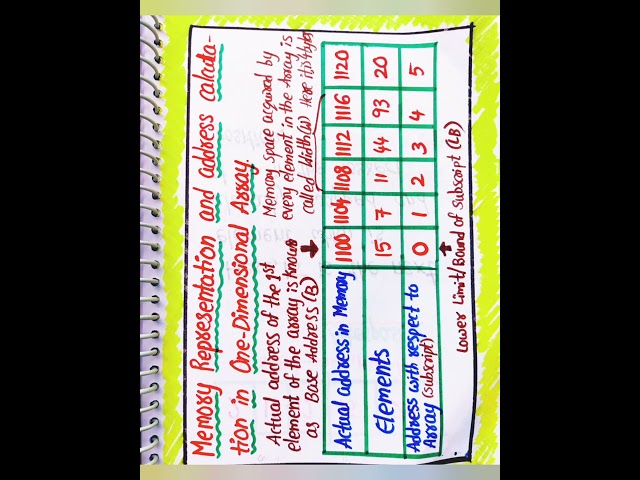 Memory Representation and address calcula-
tion in One-Dimensional Array.
Actual address of the 1st
element of the array is known
as Base Address (B)
Memory space acquired by
every element in the Array is
called Width (W) Here it is 4 bytes
Actual address in Memory 1100 1104 1108 1112 1116 1120
Elements 15 7 11 44 93 20
Address with respect to
Array (Subscript) 0 1 2 3 4 5
Lower Limit/Bound of Subscript (LB)